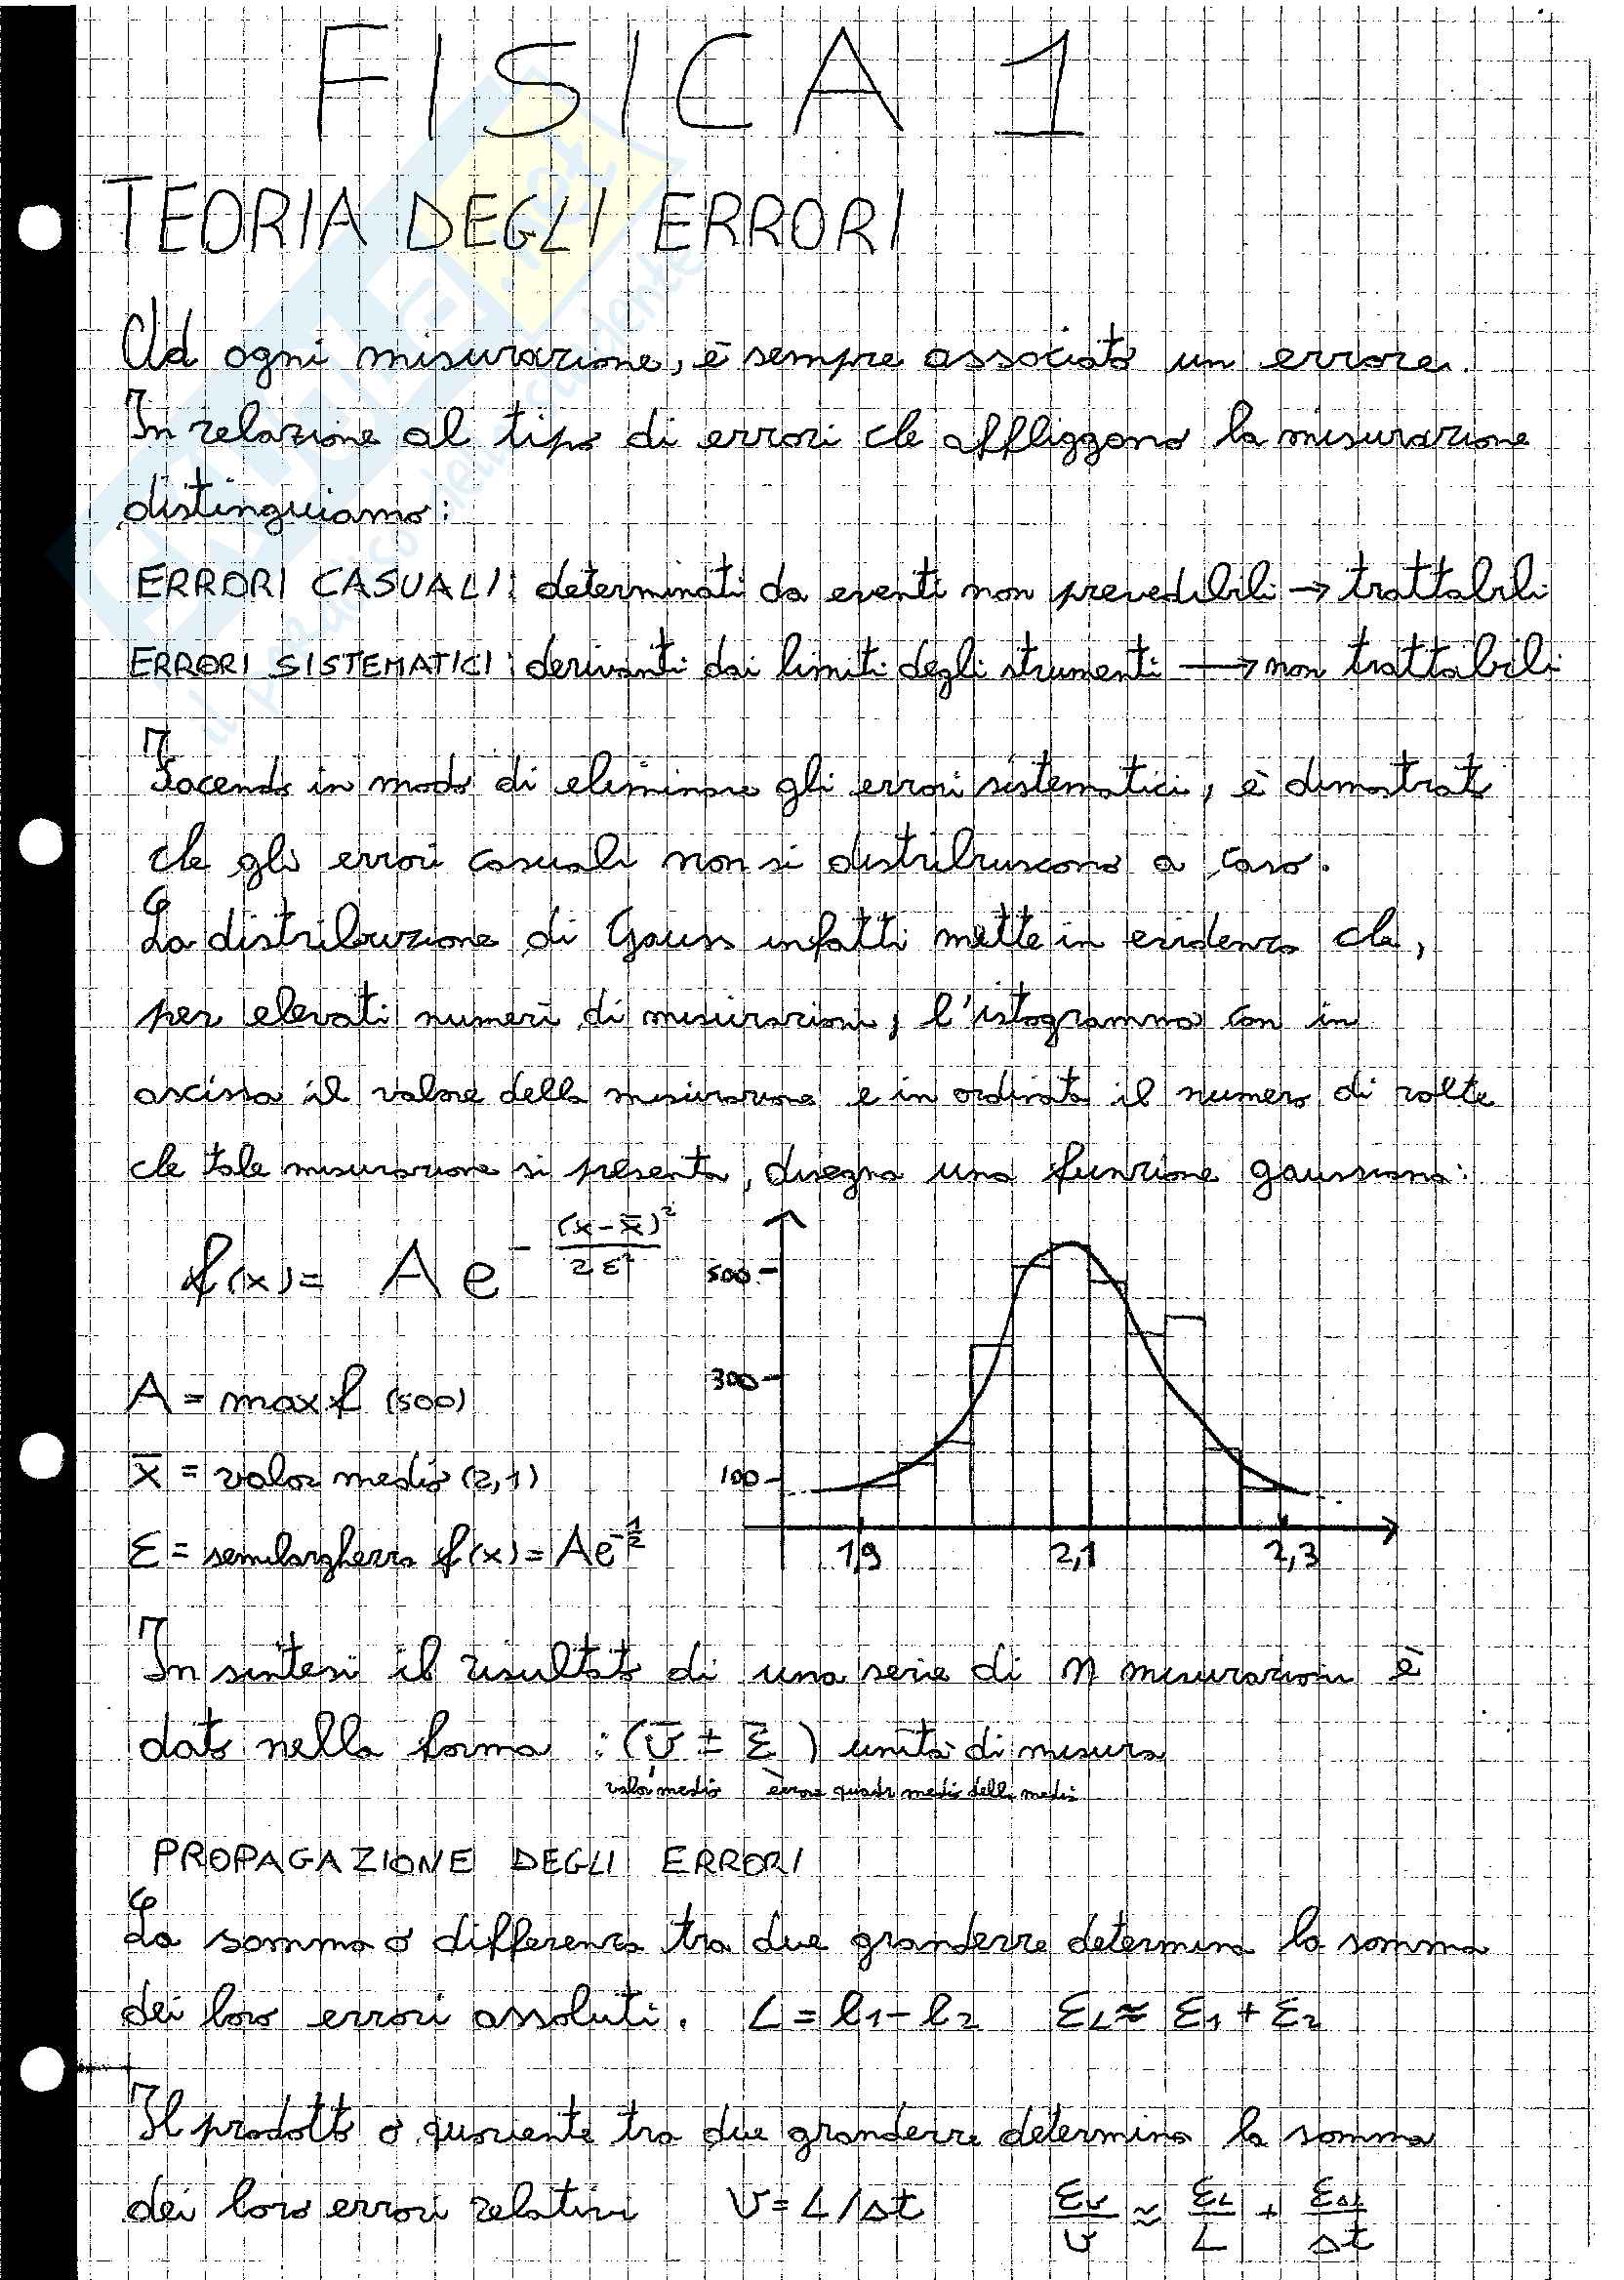 FISICA 1
TEORIA DEGLI ERRORI
Ad ogni misurazione, è sempre associato un errore.
In relazione al tipo di errori che affliggono la misurazione
distinguiamo:
ERRORI CASUALI: determinati da eventi non prevedibili → trattabili
ERRORI SISTEMATICI: derivanti dai limiti degli strumenti → non trattabili
Facendo in modo di eliminare gli errori sistematici, è dimostrato
che gli errori casuali non si distribuiscono a caso.
La distribuzione di Gauss infatti mette in evidenza che,
per elevati numeri di misurazioni, l'istogramma con in
ascissa il valore della misurazione e in ordinata il numero di volte
che tale misurazione si presenta, disegna una funzione gaussiana:
f(x) = A e^{-(x-x̄)²/2ε²}
500
300
100
1,9 2,1 2,3
A = max f (500)
x̄ = valor medio (2,1)
Ɛ = semilarghezza f(x) = Ae^{-1/2}
In sintesi il risultato di una serie di n misurazioni è
dato nella forma : (v̄ ± Ɛ̄) unità di misura
valor medio errore quadr medio della media
PROPAGAZIONE DEGLI ERRORI
La somma o differenza tra due grandezze determina la somma
dei loro errori assoluti. L = l1 - l2 ƐL ≈ Ɛ1 + Ɛ2
Il prodotto o quoziente tra due grandezze determina la somma
dei loro errori relativi v = L/Δt Ɛv/v ≈ ƐL/L + ƐΔt/Δt